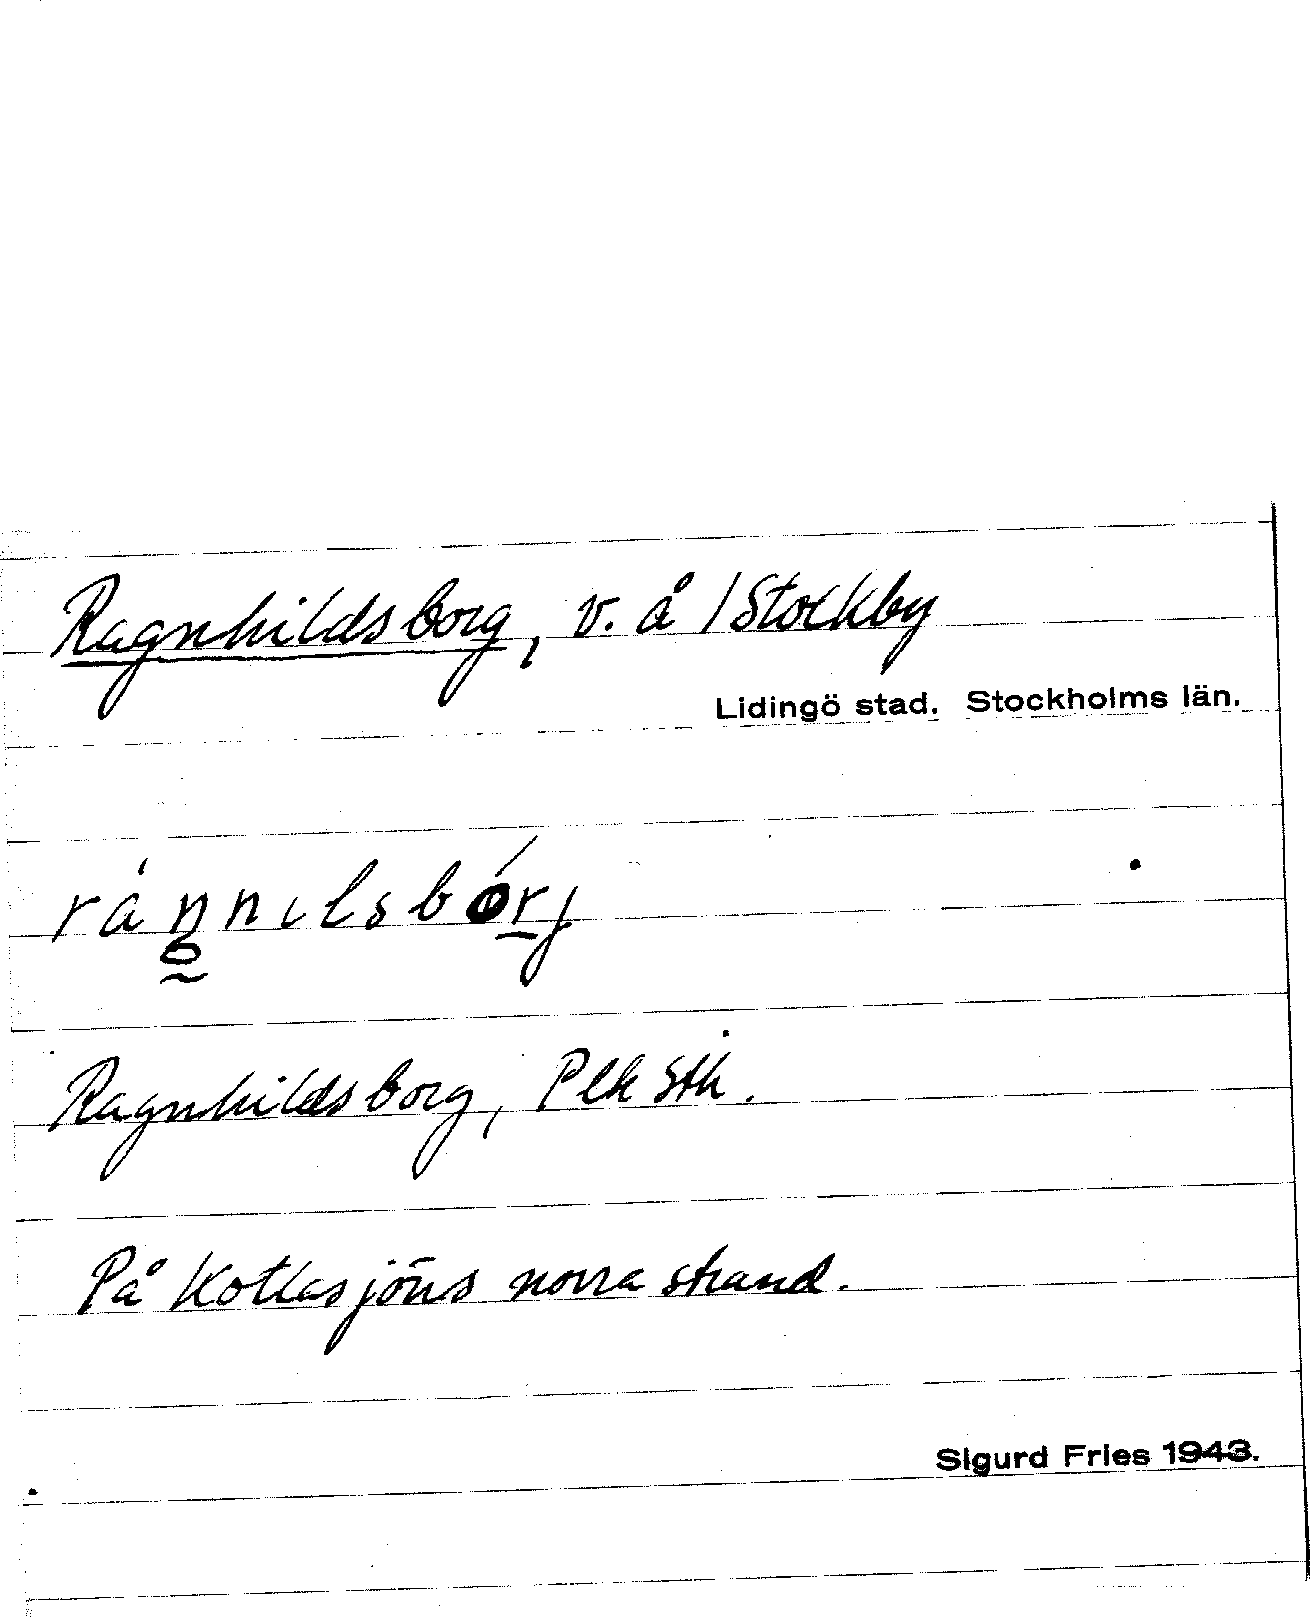 Ragnhildsborg, v. å /Stockby
Lidingö stad. Stockholms län.
ráŋnılsbórj
Ragnhildsborg, Plk Sth.
På Kottlasjöns norra strand.
Sigurd Fries 1943.